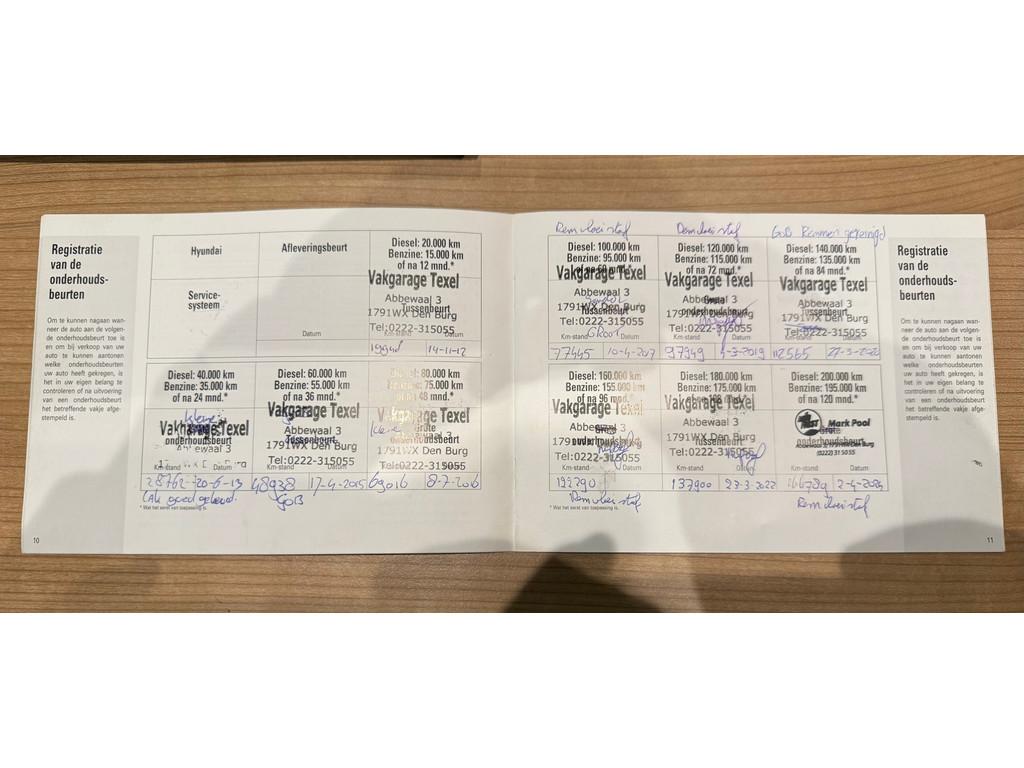 Registratie
van de
onderhouds-
beurten
Om te kunnen nagaan wan-
neer de auto aan de volgen-
de onderhoudsbeurt toe is
en om bij verkoop van uw
auto te kunnen aantonen
welke onderhoudsbeurten
uw auto heeft gekregen, is
het in uw eigen belang te
controleren of na uitvoering
van een onderhoudsbeurt
het betreffende vakje afge-
stempeld is.
10
Hyundai
Service-
systeem
Afleveringsbeurt
Datum
Diesel: 20.000 km
Benzine: 15.000 km
of na 12 mnd.*
Vakgarage Texel
Abbewaal 3
Tussenbeurt
1791WX Den Burg
Tel:0222-315055
Datum
14-11-12
Diesel: 40.000 km
Benzine: 35.000 km
of na 24 mnd.*
Kleine
Vakgarage Texel
onderhoudsbeurt
Km-stand Datum
28762 20-6-13
Diesel: 60.000 km
Benzine: 55.000 km
of na 36 mnd.*
Vakgarage Texel
Abbewaal 3
Tussenbeurt
1791WX Den Burg
Tel:0222-315055
48938 17-4-2015
GOB
80.000 km
75.000 km
48 mnd.*
Vakgarage Texel
Grote
onderhoudsbeurt
1791WX Den Burg
Tel:0222-315055
69016 8-7-2016
* Wat het eerst van toepassing is.
Remvloeistof
Diesel: 100.000 km
Benzine: 95.000 km
Vakgarage Texel
Abbewaal 3
1791WX Den Burg
Tel:0222-315055
GROOT
Km-stand Datum
77445 10-4-2017
Remvloeistof
Diesel: 120.000 km
Benzine: 115.000 km
of na 72 mnd.*
Vakgarage Texel
Abbewaal 3
Grote
onderhoudsbeurt
1791WX Den Burg
Tel:0222-315055
Km-stand Datum
97349 -3-2019
GOB Remmen gereinigd
Diesel: 140.000 km
Benzine: 135.000 km
of na 84 mnd.*
Vakgarage Texel
Abbewaal 3
Tussenbeurt
1791WX Den Burg
Tel:0222-315055
Km-stand Datum
112565
Diesel: 160.000 km
Benzine: 155.000 km
of na 96 mnd.*
Vakgarage Texel
Abbewaal 3
onderhoudsbeurt
Tel:0222-315055
Km-stand Datum
Remvloeistof
Diesel: 180.000 km
Benzine: 175.000 km
Vakgarage Texel
Abbewaal 3
Tussenbeurt
1791WX Den Burg
Tel:0222-315055
Km-stand Datum
137900 23-3-2022
Diesel: 200.000 km
Benzine: 195.000 km
of na 120 mnd.*
Mark Pool
Grote
onderhoudsbeurt
Abbewaal 3, 1791WX Den Burg
(0222) 31 50 55
Km-stand Datum
166789 2-4-2024
Remvloeistof
* Wat het eerst van toepassing is.
Registratie
van de
onderhouds-
beurten
Om te kunnen nagaan wan-
neer de auto aan de volgen-
de onderhoudsbeurt toe is
en om bij verkoop van uw
auto te kunnen aantonen
welke onderhoudsbeurten
uw auto heeft gekregen, is
het in uw eigen belang te
controleren of na uitvoering
van een onderhoudsbeurt
het betreffende vakje afge-
stempeld is.
11